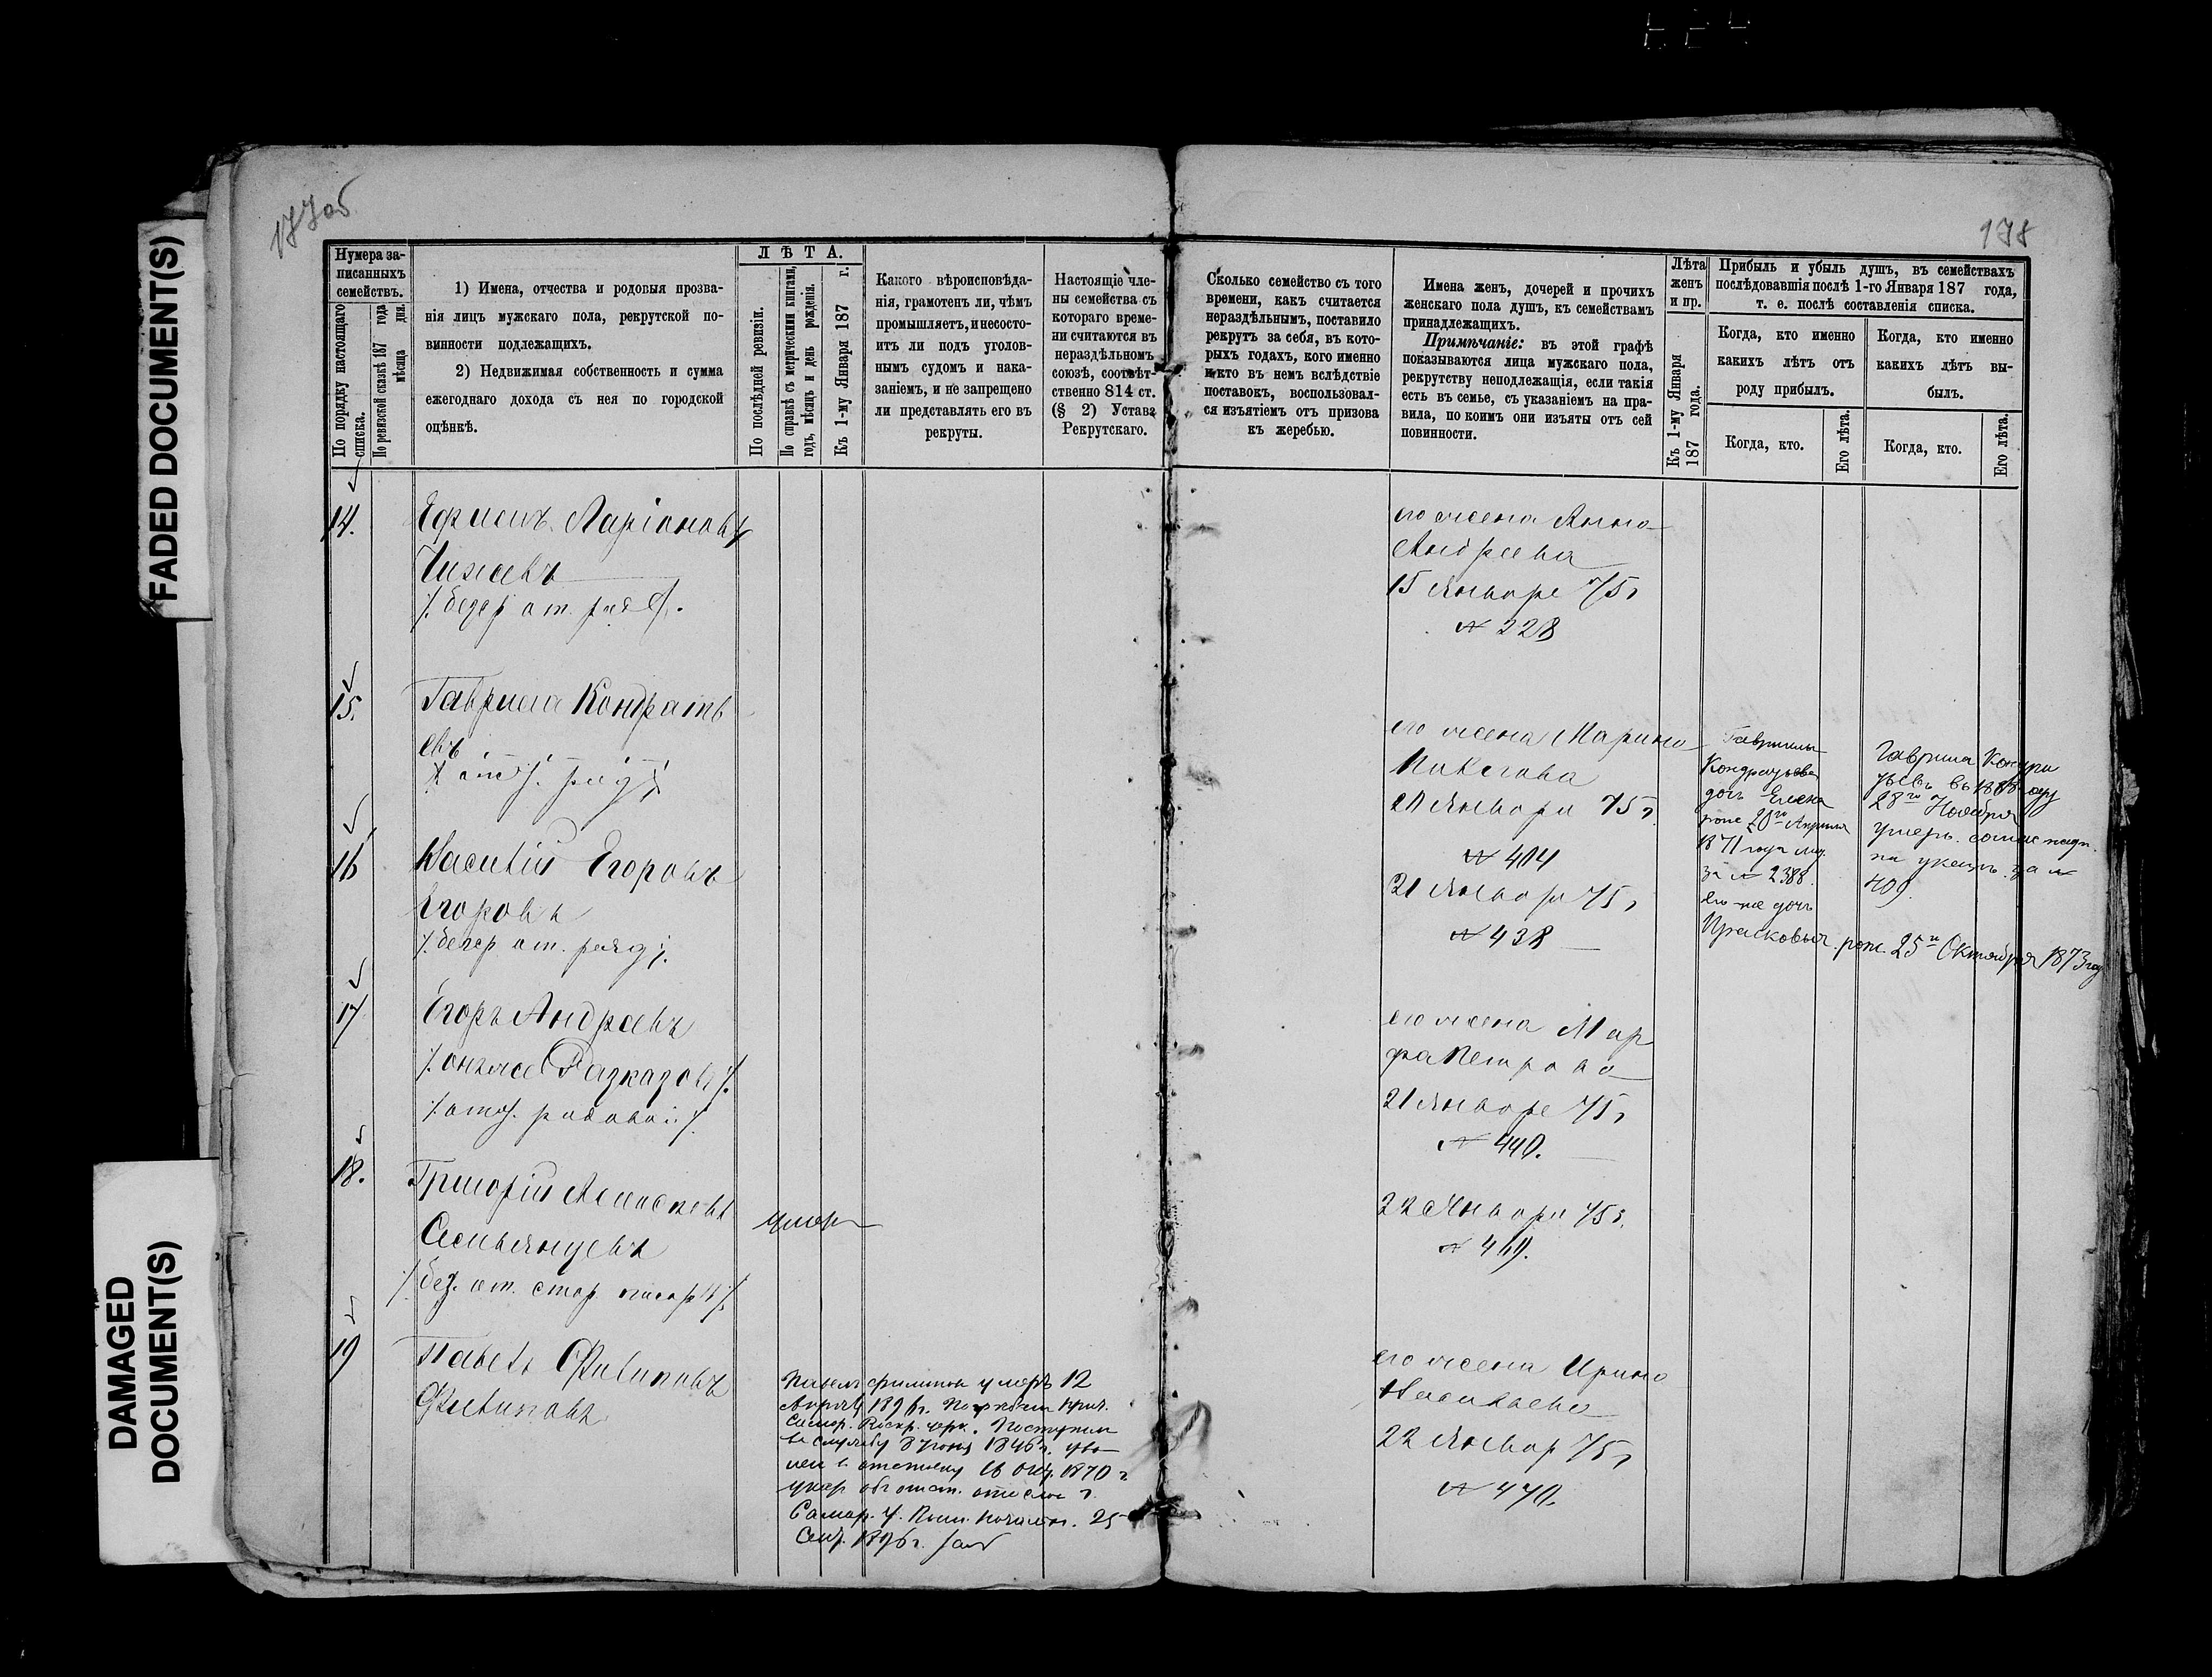 FADED DOCUMENT(S)
DAMAGED
DOCUMENT(S)
177об
178
Нумера за-
писанныхъ
семействъ.
По порядку настоящаго
списка.
По ревизской сказкѣ 187 года
мѣсяца дня.
1) Имена, отчества и родовыя прозва-
нія лицъ мужскаго пола, рекрутской по-
винности подлежащихъ.
2) Недвижимая собственность и сумма
ежегоднаго дохода съ нея по городской
оцѣнкѣ.
ЛѢТА.
По послѣдней ревизіи.
По справкѣ съ метрическими книгами,
годъ, мѣсяцъ и день рожденія.
Къ 1-му Января 187 г.
Какого вѣроисповѣда-
нія, грамотенъ ли, чѣмъ
промышляетъ, и несосто-
итъ ли подъ уголов-
нымъ судомъ и нака-
заніемъ, и не запрещено
ли представлять его въ
рекруты.
Настоящіе чле-
ны семейства съ
котораго време-
ни считаются въ
нераздѣльномъ
союзѣ, соотвѣт-
ственно 814 ст.
(§ 2) Устава
Рекрутскаго.
Сколько семейство съ того
времени, какъ считается
нераздѣльнымъ, поставило
рекрутъ за себя, въ кото-
рыхъ годахъ, кого именно
и кто въ немъ вслѣдствіе
поставокъ, воспользовал-
ся изъятіемъ отъ призова
къ жеребью.
Имена женъ, дочерей и прочихъ
женскаго пола душъ, къ семействамъ
принадлежащихъ.
Примѣчаніе: въ этой графѣ
показываются лица мужскаго пола,
рекрутству неподлежащія, если такія
есть въ семье, съ указаніемъ на пра-
вила, по коимъ они изъяты отъ сей
повинности.
Лѣта
женъ
и пр.
Къ 1-му Января
187 года.
Прибыль и убыль душъ, въ семействахъ
послѣдовавшія послѣ 1-го Января 187 года,
т. е. послѣ составленія списка.
Когда, кто именно
какихъ лѣтъ отъ
роду прибылъ.
Когда, кто.
Его лѣта.
Когда, кто именно
какихъ лѣтъ вы-
былъ.
Когда, кто.
Его лѣта.
14.
Ефимъ Ларіоновъ
Чижевъ
его жена Анна
Андреева
15 Января 75 г
№ 228
15.
Гаврила Кондрать
евъ
его жена Марина
21 Января 75 г.
№ 404
Гаврилы
Кондратьева
дочь Елена
рож. 20го Апреля
1871 года
за № 2388.
Его же дочь
Прасковья рож. 25го Октября 1873 год
Гаврила Кондра
тьевъ въ 1888 году
28го Ноября
умеръ.
409.
16
Василій Егоровъ
Егоровъ
21 Января 75 г
№ 438
17
Егоръ Андреевъ
/онъ же Разказовъ/
/отст. рядовой/
его жена Мар
фа Петрова
21 Января 75 г
№ 440.
18.
Григорій Алексеевъ
умеръ
22 Января 75 г.
№ 469.
19
Павелъ Филиповъ
Филиповъ
Павелъ Филиппов умеръ 12
Апреля 1896 г.
Самар. Воскр. церк. Поступил
въ службу 1846 г. уво-
лен в отставку 1870 г
Самар. У. Воин. Начальн. 25
Сент. 1896 г.
его жена Ирина
Васильева
22 Январ 75 г
№ 470.